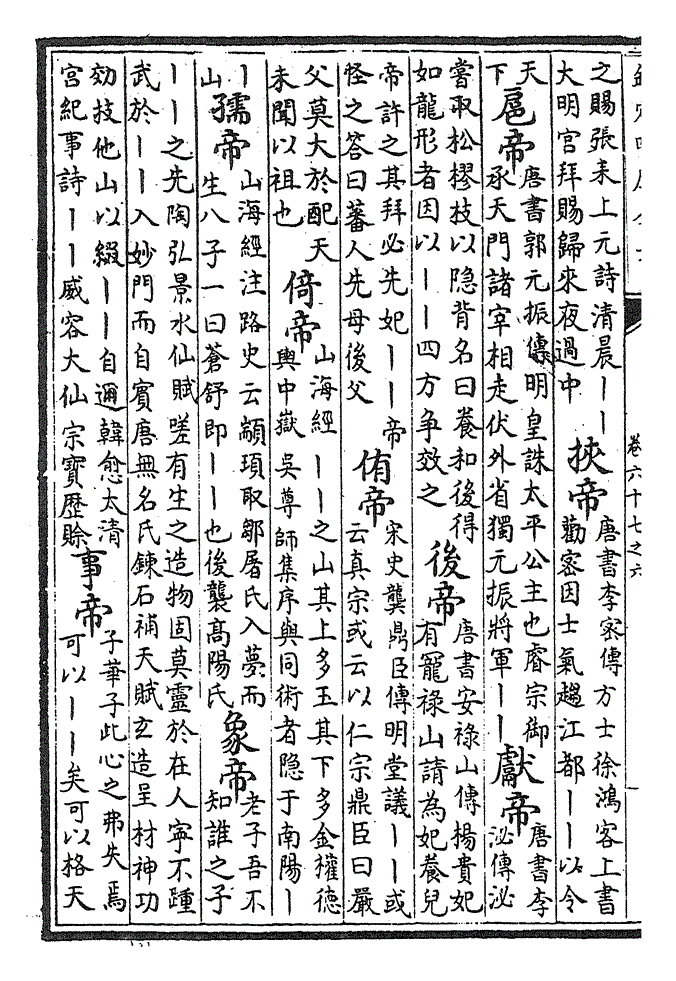 卷六十七之六
之賜張耒上元詩清晨丨丨
大明宮拜賜歸來夜過中
挾帝
唐書李密傳方士徐鴻客上書
勸密因士氣趨江都丨丨以令
天
下
扈帝
唐書郭元振傳明皇誅太平公主也睿宗御
承天門諸宰相走伏外省獨元振將軍丨丨
獻帝
唐書李
泌傳泌
嘗取松樛枝以隐背名曰養和後得
如龍形者因以丨丨四方争效之
後帝
唐書安祿山傳楊貴妃
有寵祿山請為妃養兒
帝許之其拜必先妃丨丨帝
怪之答曰蕃人先母後父
侑帝
宋史龔鼎臣傳明堂議丨丨或
云真宗或云以仁宗鼎臣曰嚴
父莫大於配天
未聞以祖也
倚帝
山海經丨丨之山其上多玉其下多金權德
輿中嶽吳尊師集序與同術者隐于南陽丨
丨
山
孺帝
山海經注路史云顓頊取鄒屠氏入夢而
生八子一曰蒼舒即丨丨也後襲高陽氏
象帝
老子吾不
知誰之子
丨丨之先陶弘景水仙賦嗟有生之造物固莫靈於在人寧不踵
武於丨丨入妙門而自賓唐無名氏錬石補天賦玄造呈材神功
効技他山以綴丨丨自邇韓愈太清
宮紀事詩丨丨威容大仙宗寶歴賒
事帝
子華子此心之弗失焉
可以丨丨矣可以格天